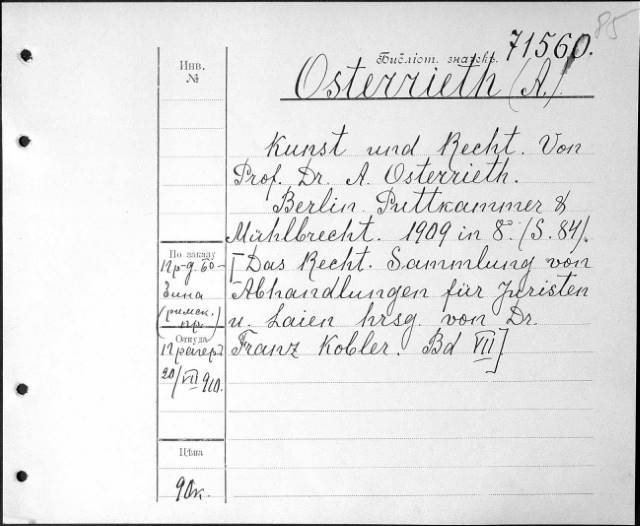 85
71560.
Библіот. значекъ.
Osterrieth (A.)
Инв.
№
Kunst und Recht. Von
Prof. Dr. A. Osterrieth.
Berlin. Puttkammer &
Mühlbrecht. 1909 in 8º. (S. 84).
[Das Recht. Sammlung von
Abhandlungen für Juristen
u. Laien hrsg. von Dr.
Franz Kobler. Bd VII]
По заказу
(римск.
пр.)
Откуда
20/VII 910.
Цѣна
90к.